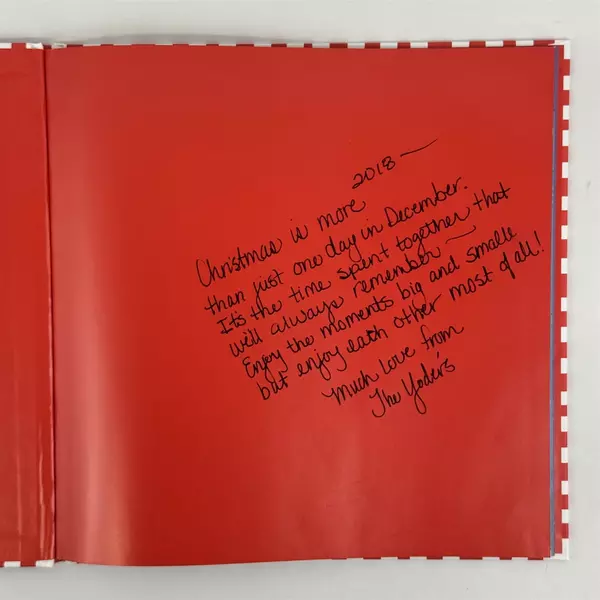 2018 —
Christmas is more
than just one day in December.
It's the time spent together that
we'll always remember —
Enjoy the moments big and smalle
but enjoy each other most of all!
Much Love from
The Yoder's